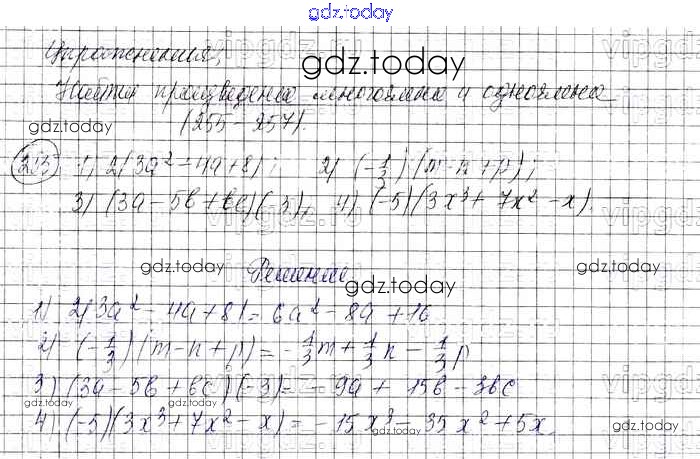 gdz.today
Упражнения.
gdz.today
Найти произведение многочлена и одночлена
gdz.today
(255 – 257).
255 1) 2(3a² – 4a + 8); 2) (-1/3)(m – n + p);
3) (3a – 5b + bc)(-3); 4) (-5)(3x³ + 7x² – x).
Решение.
gdz.today
gdz.today
gdz.today
1) 2(3a² – 4a + 8) = 6a² – 8a + 16
2) (-1/3)(m – n + p) = -1/3 m + 1/3 n – 1/3 p
3) (3a – 5b + bc)(-3) = -9a + 15b – 3bc
gdz.today
4) (-5)(3x³ + 7x² – x) = -15x³ – 35x² + 5x.
gdz.today
gdz.today